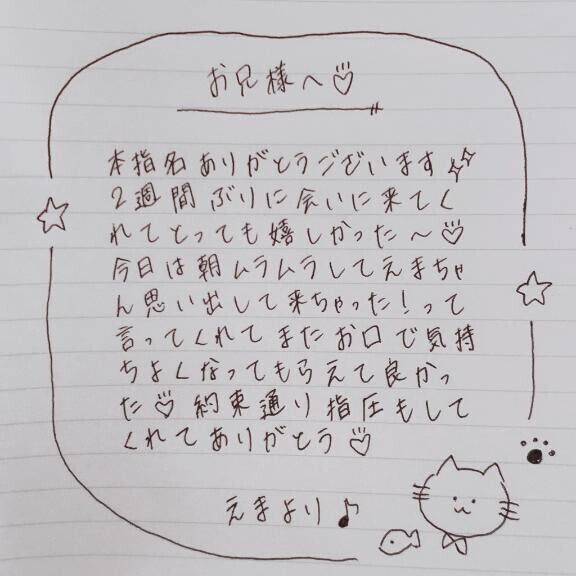 お兄様へ♡
本指名ありがとうございます
2週間ぶりに会いに来てく
れてとっても嬉しかった〜♡
今日は朝ムラムラしてえまちゃ
ん思い出して来ちゃった!って
言ってくれてまたお口で気持
ちよくなってもらえて良かっ
た♡約束通り指圧もして
くれてありがとう♡
えまより♪